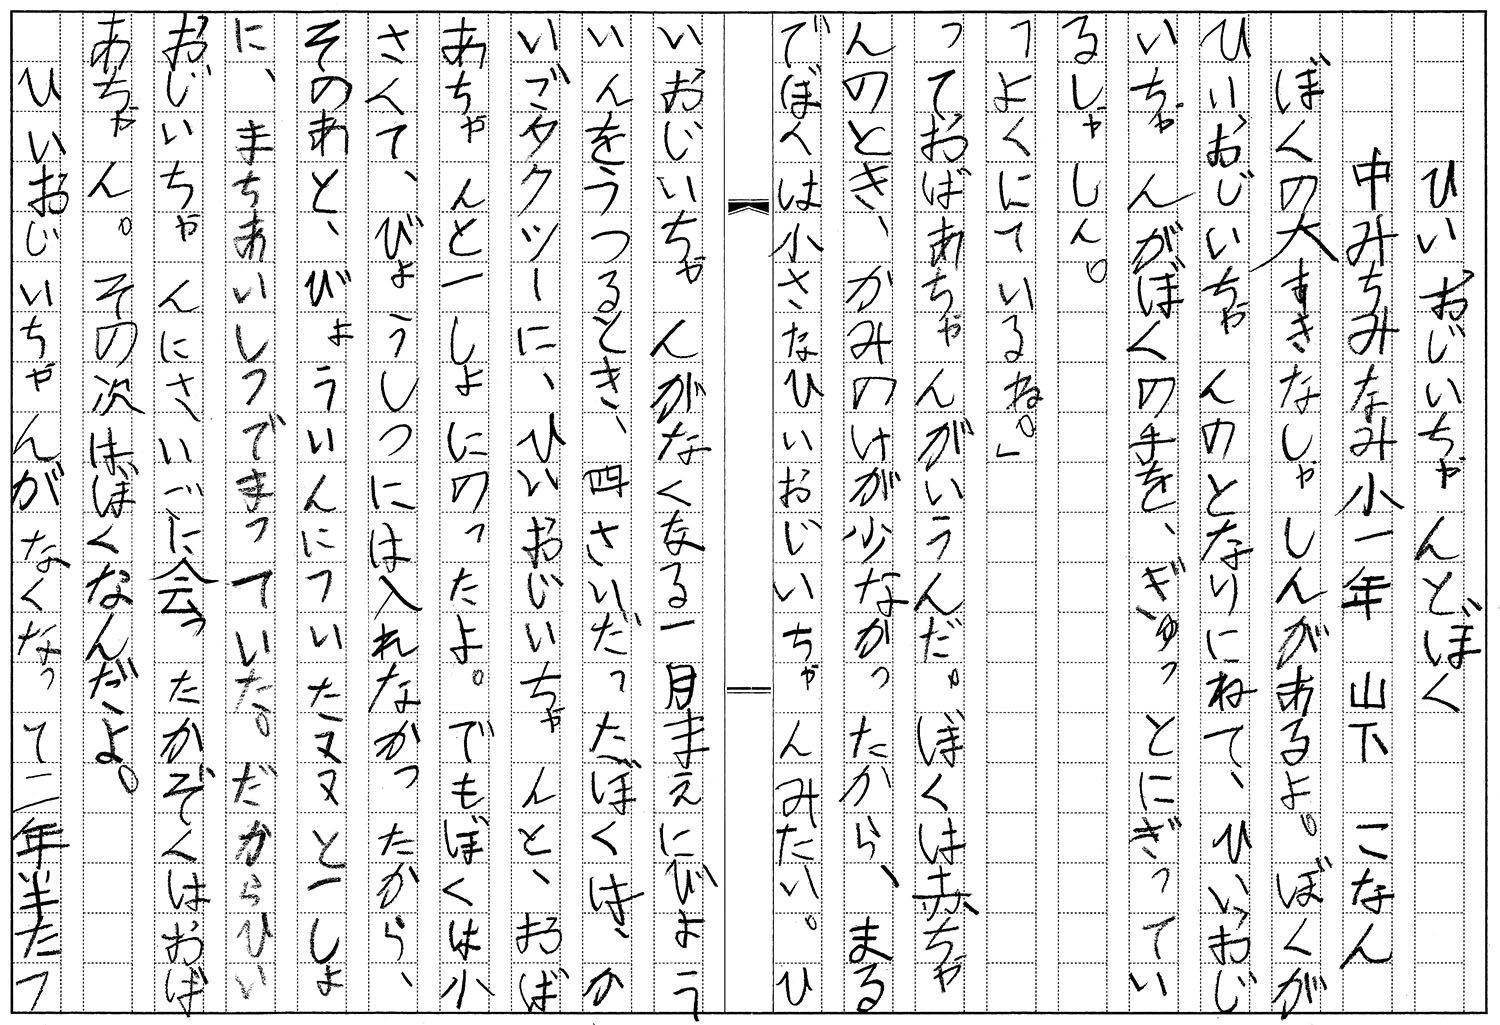 ひいおじいちゃんとぼく
中みちみなみ小一年　山下　こなん
ぼくの大すきなしゃしんがあるよ。ぼくが
ひいおじいちゃんのとなりにねて、ひいおじ
いちゃんがぼくの手を、ぎゅっとにぎってい
るしゃしん。
「よくにているね。」
っておばあちゃんがいうんだ。ぼくは赤ちゃ
んのとき、かみのけが少なかったから、まる
でぼくは小さなひいおじいちゃんみたい。ひ
いおじいちゃんがなくなる一月まえにびょう
いんをうつるとき、四さいだったぼくは、か
いごタクシーに、ひいおじいちゃんと、おば
あちゃんと一しょにのったよ。でもぼくは小
さくて、びょうしつには入れなかったから、
そのあと、びょういんについたママと一しょ
に、まちあいしつでまっていた。だからひい
おじいちゃんにさいごに会ったかぞくはおば
あちゃん。その次はぼくなんだよ。
ひいおじいちゃんがなくなって二年半たつ